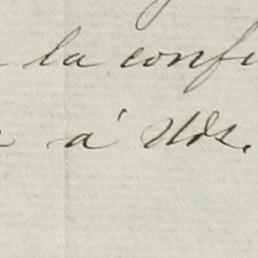 la confi
á Uds.